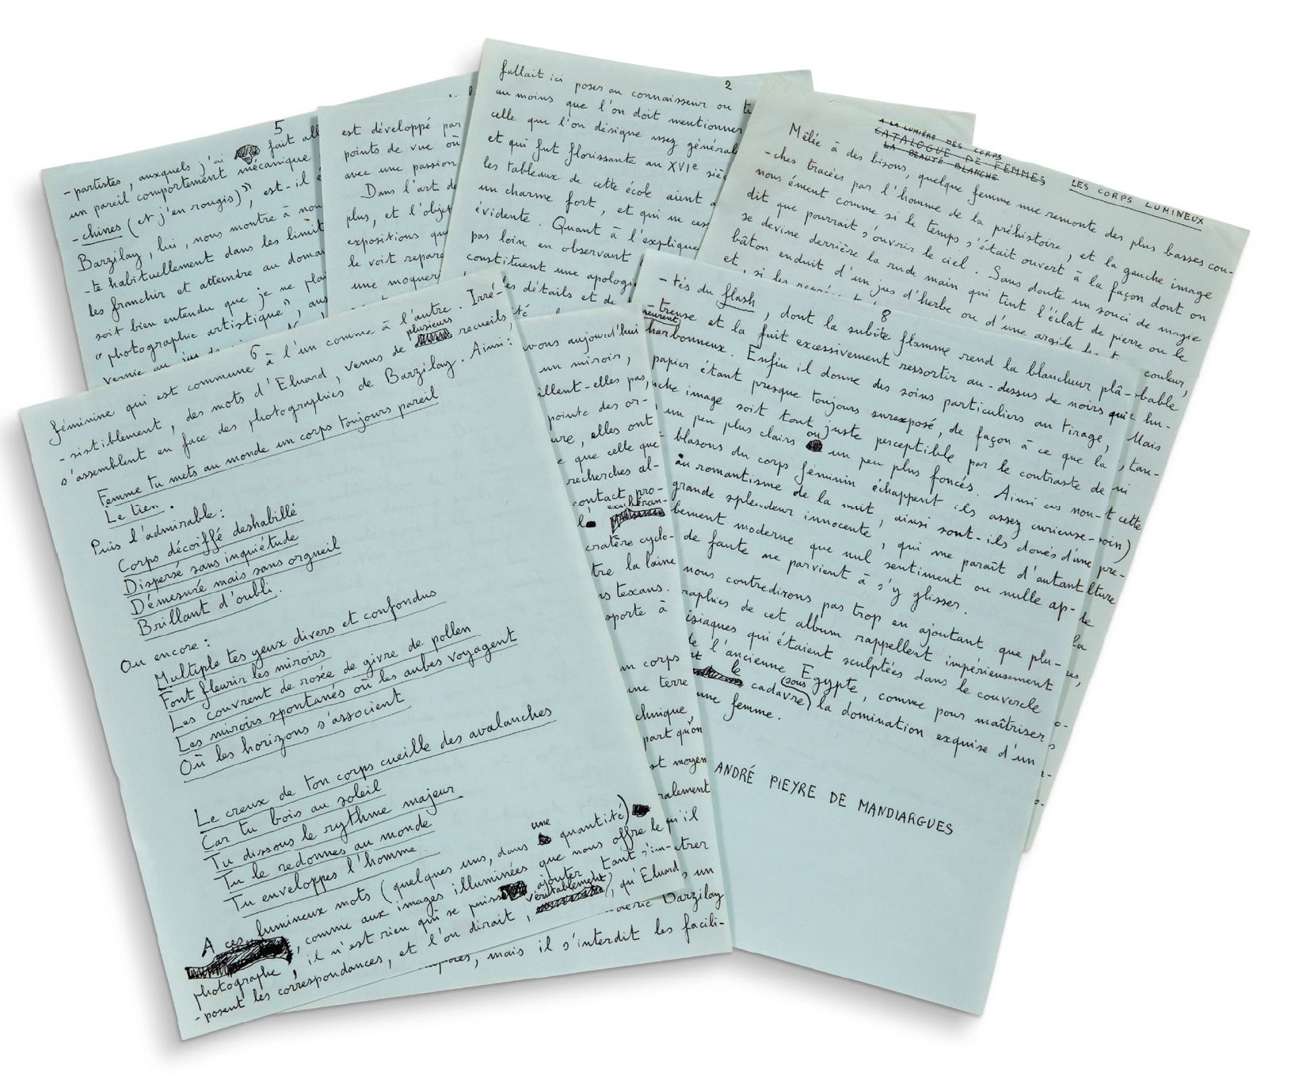 5
-partistes, auxquels j'ai fait all
un pareil comportement mécanique
-chines (et j'en rougis)", est-il
Barzilay, lui, nous montre à nou
-te habituellement dans les limit
les franchir et atteindre au doma
soit bien entendu que je ne pla
"photographie artistique", aus
est développé par
points de vue où
avec une passion
Dans l'art de
plus, et l'obje
expositions qu
le voit repara
une moquer
2
fallait ici poser au connaisseur ou
au moins que l'on doit mentionner
celle que l'on désigne assez général
et qui fut florissante au XVIe siè
les tableaux de cette école aient
un charme fort, et qui ne ces
évidente. Quant à l'explique
pas loin en observant
constituent une apolog
les détails et de
A LA LUMIÈRE DES CORPS
CATALOGUE DE FEMMES
LA BEAUTÉ BLANCHE
LES CORPS LUMINEUX
Mêlée à des bisons, quelque femme nue remonte des plus basses cou-
-ches tracées par l'homme de la préhistoire, et la gauche image
nous émeut comme si le temps s'était ouvert à la façon dont on
dit que pourrait s'ouvrir le ciel. Sans doute un souci de magie
se devine derrière la rude main qui tient l'éclat de pierre ou le
bâton enduit d'un jus d'herbe ou d'une argile
couleur,
6
féminine qui est commune à l'un comme à l'autre. Irré-
-sistiblement, des mots d'Eluard, venus de plusieurs recueils,
s'assemblent en face des photographies de Barzilay. Ainsi:
Femme tu mets au monde un corps toujours pareil
Le tien.
Puis l'admirable:
Corps décoiffé deshabillé
Dispersé sans inquiétude
Démesuré mais sans orgueil
Brillant d'oubli.
Ou encore:
Multiple tes yeux divers et confondus
Font fleurir les miroirs
Les couvrent de rosée de givre de pollen
Les miroirs spontanés où les aubes voyagent
Où les horizons s'associent
Le creux de ton corps cueille des avalanches
Car tu bois au soleil
Tu dissous le rythme majeur
Tu le redonnes au monde
Tu enveloppes l'homme.
A ces lumineux mots (quelques uns, dans une quantité)
, comme aux images illuminées que nous offre le
photographe, il n'est rien qui se puisse ajouter, tant s'im-
-posent les correspondances, et l'on dirait, véritablement, qu'Eluard
vons aujourd'hui
un miroir,
illent-elles pas,
pointe des or-
ure, elles ont
que celle que
recherches al-
contact pro-
cratère cyclo-
tre la laine
s texans.
sporte à
un corps
une terre
chnique
part qu'on
st moyen
ralement
qu'il
trer
un
Barzilay
, mais il s'interdit les facili-
8
-tés du flash, dont la subite flamme rend la blancheur plâ-
-treuse et la fait excessivement ressortir au-dessus de noirs
charbonneux. Enfin il donne des soins particuliers au tirage,
papier étant presque toujours surexposé, de façon à ce que la
che image soit tout juste perceptible par le contraste de
un peu plus clairs ou un peu plus foncés. Ainsi ces nou-
blasons du corps féminin échappent-ils assez curieuse-
au romantisme de la nuit, ainsi sont-ils doués d'une
grande splendeur innocente, qui me paraît d'autant
bement moderne que nul sentiment ou nulle ap-
de faute ne parvient à s'y glisser.
nous contredirons pas trop en ajoutant que plu-
raphies de cet album rappellent impérieusement
siaques qui étaient sculptées dans le couvercle
de l'ancienne Egypte, comme pour maîtriser
le cadavre sous la domination exquise d'un
une femme.
ANDRÉ PIEYRE DE MANDIARGUES